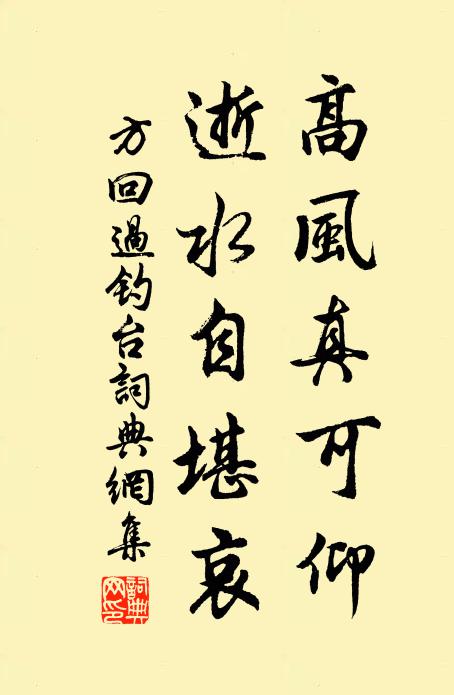 高風真可仰
逝水自堪哀
方回過釣台詞典網集
詞典网印